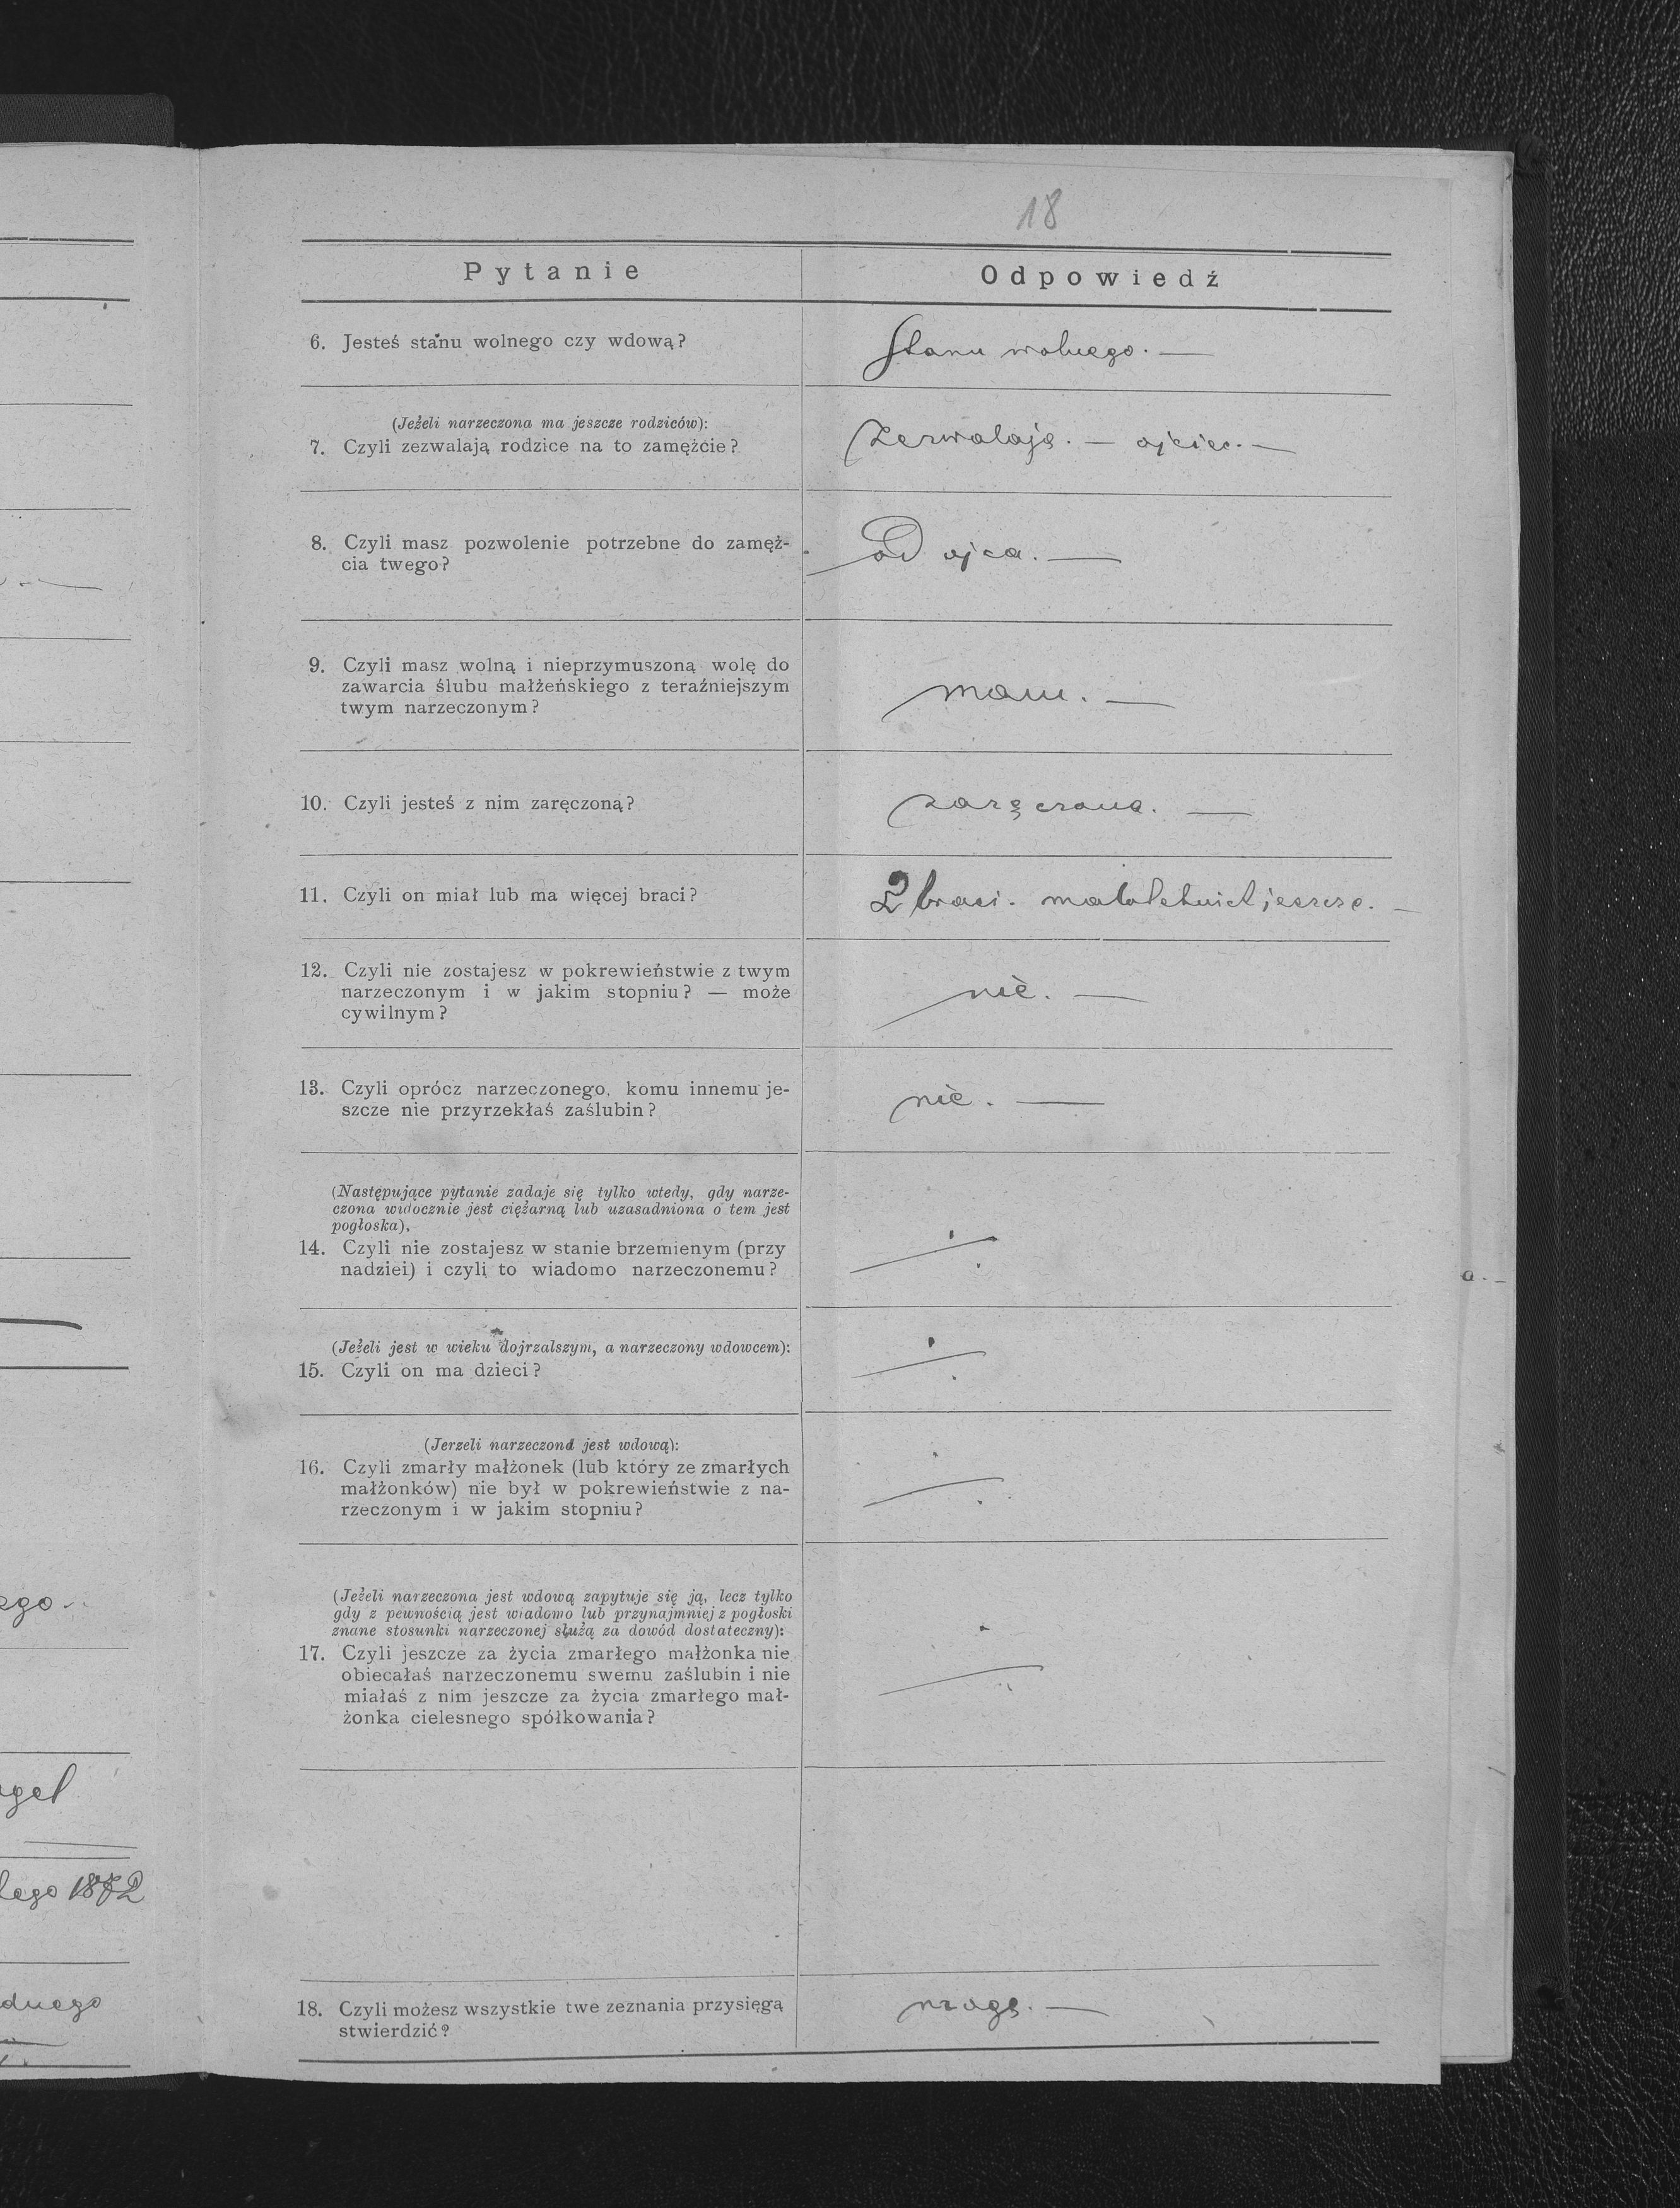 18
Pytanie
Odpowiedź
6. Jesteś stanu wolnego czy wdową?
Stanu wolnego. —
(Jeżeli narzeczona ma jeszcze rodziców):
7. Czyli zezwalają rodzice na to zamężcie?
zezwalają. — ojciec. —
8. Czyli masz pozwolenie potrzebne do zamęż-
cia twego?
od ojca. —
9. Czyli masz wolną i nieprzymuszoną wolę do
zawarcia ślubu małżeńskiego z teraźniejszym
twym narzeczonym?
mam. —
10. Czyli jesteś z nim zaręczoną?
zaręczona. —
11. Czyli on miał lub ma więcej braci?
2 braci. małoletnich jeszcze. —
12. Czyli nie zostajesz w pokrewieństwie z twym
narzeczonym i w jakim stopniu? — może
cywilnym?
nie. —
13. Czyli oprócz narzeczonego, komu innemu je-
szcze nie przyrzekłaś zaślubin?
nie. —
(Następujące pytanie zadaje się tylko wtedy, gdy narze-
czona widocznie jest ciężarną lub uzasadniona o tem jest
pogłoska),
14. Czyli nie zostajesz w stanie brzemienym (przy
nadziei) i czyli to wiadomo narzeczonemu?
÷
(Jeżeli jest w wieku dojrzalszym, a narzeczony wdowcem):
15. Czyli on ma dzieci?
÷
(Jerzeli narzeczona jest wdową):
16. Czyli zmarły małżonek (lub który ze zmarłych
małżonków) nie był w pokrewieństwie z na-
rzeczonym i w jakim stopniu?
÷
(Jeżeli narzeczona jest wdową zapytuje się ją, lecz tylko
gdy z pewnością jest wiadomo lub przynajmniej z pogłoski
znane stosunki narzeczonej służą za dowód dostateczny):
17. Czyli jeszcze za życia zmarłego małżonka nie
obiecałaś narzeczonemu swemu zaślubin i nie
miałaś z nim jeszcze za życia zmarłego mał-
żonka cielesnego spółkowania?
÷
18. Czyli możesz wszystkie twe zeznania przysięgą
stwierdzić?
mogę. —